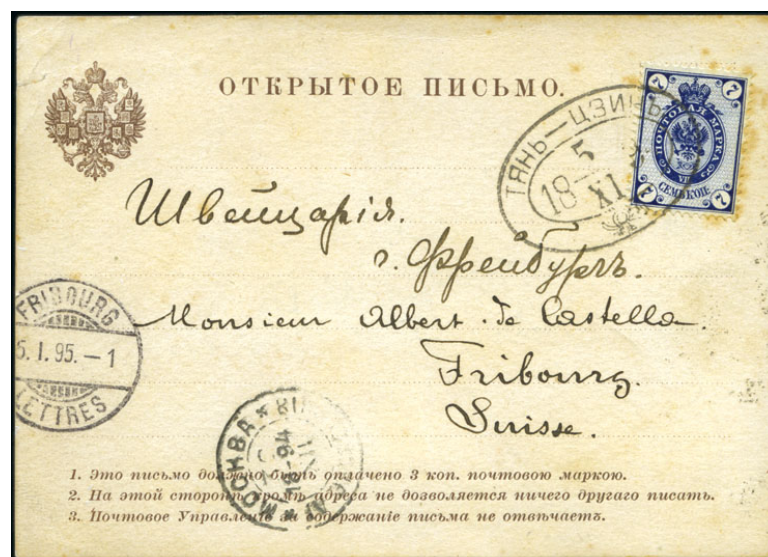 ОТКРЫТОЕ ПИСЬМО.
7 7
ПОЧТОВАЯ МАРКА
СЕМЬ КОП
7 7
ТЯНЬ—ЦЗИНЬ
5
18 XI
Швейцарія.
г. Фрейбургъ.
Monsieur Albert de Castella.
Fribourg.
Suisse.
FRIBOURG
5. I. 95. — 1
LETTRES
МОСКВА
94
1. Это письмо должно быть оплачено 3 коп. почтовою маркою.
2. На этой сторонѣ кромѣ адреса не дозволяется ничего другаго писать.
3. Почтовое Управленіе за содержаніе письма не отвѣчаетъ.